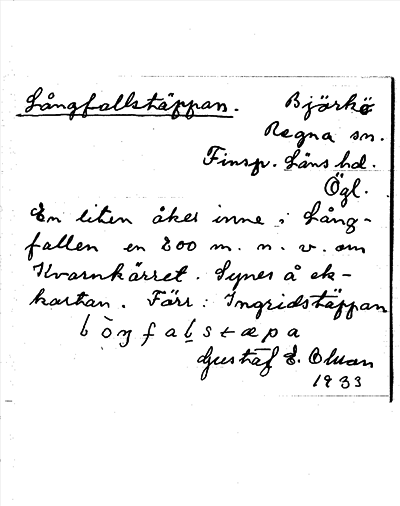 Långfallstäppan. Björkö
Regna sn.
Finsp. Läns hd.
Ögl.
En liten åker inne i Lång-
fallen en 200 m. n. v. om
Kvarnkärret. Synes å ek-
kartan. Färr: Ingridstäppan
Gustaf E. Olson
1933